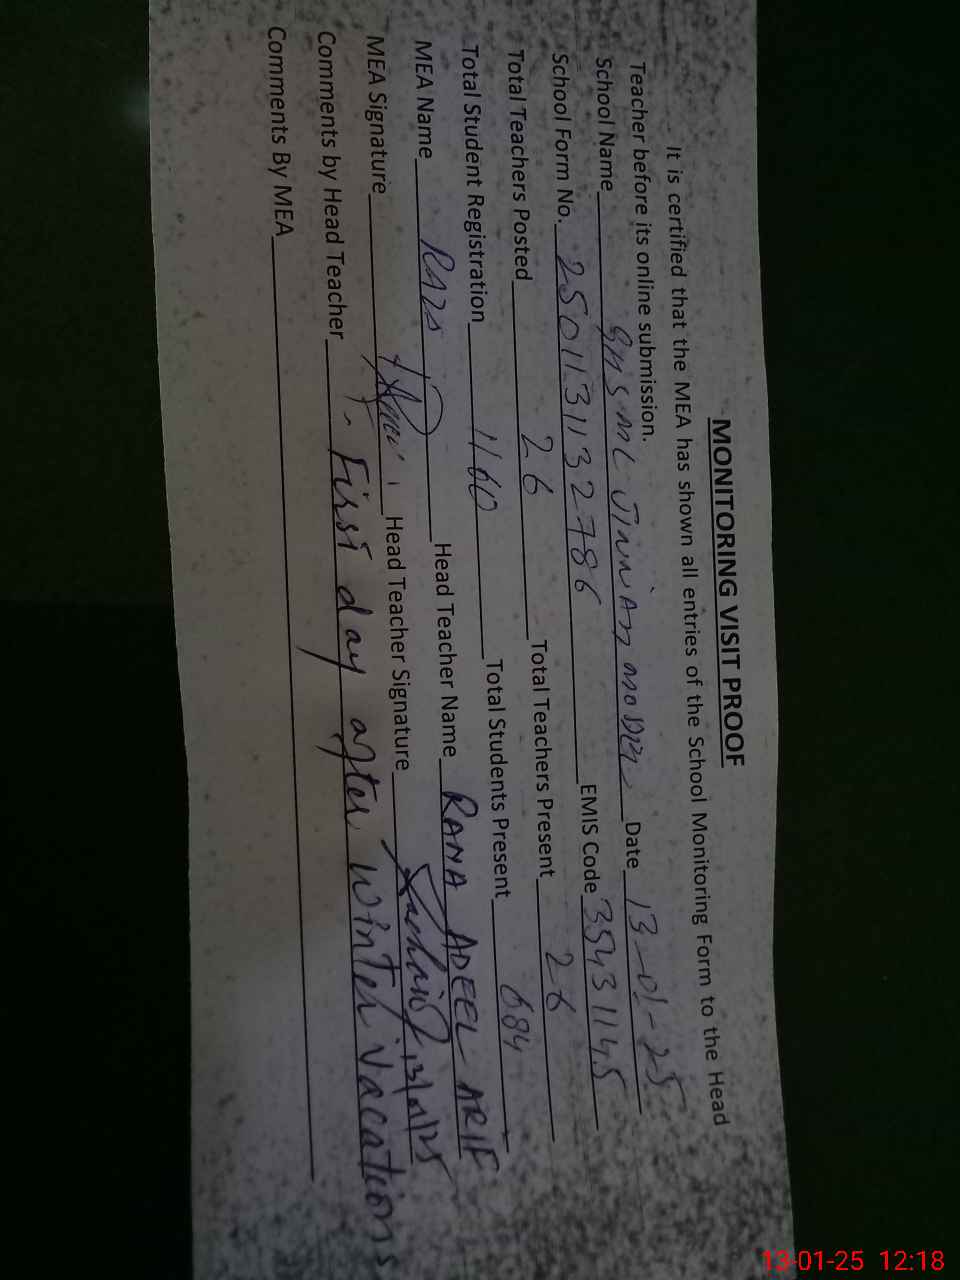 MONITORING VISIT PROOF
It is certified that the MEA has shown all entries of the School Monitoring Form to the Head
Teacher before its online submission.
School Name Date 13-01-25
School Form No. 2501131132786 EMIS Code 35431145
Total Teachers Posted 26 Total Teachers Present 26
Total Student Registration 1160 Total Students Present 684
MEA Name Head Teacher Name RANA ADEEL ARIF
MEA Signature Head Teacher Signature 13/01/25
Comments by Head Teacher First day after winter vacations
Comments By MEA
13-01-25 12:18